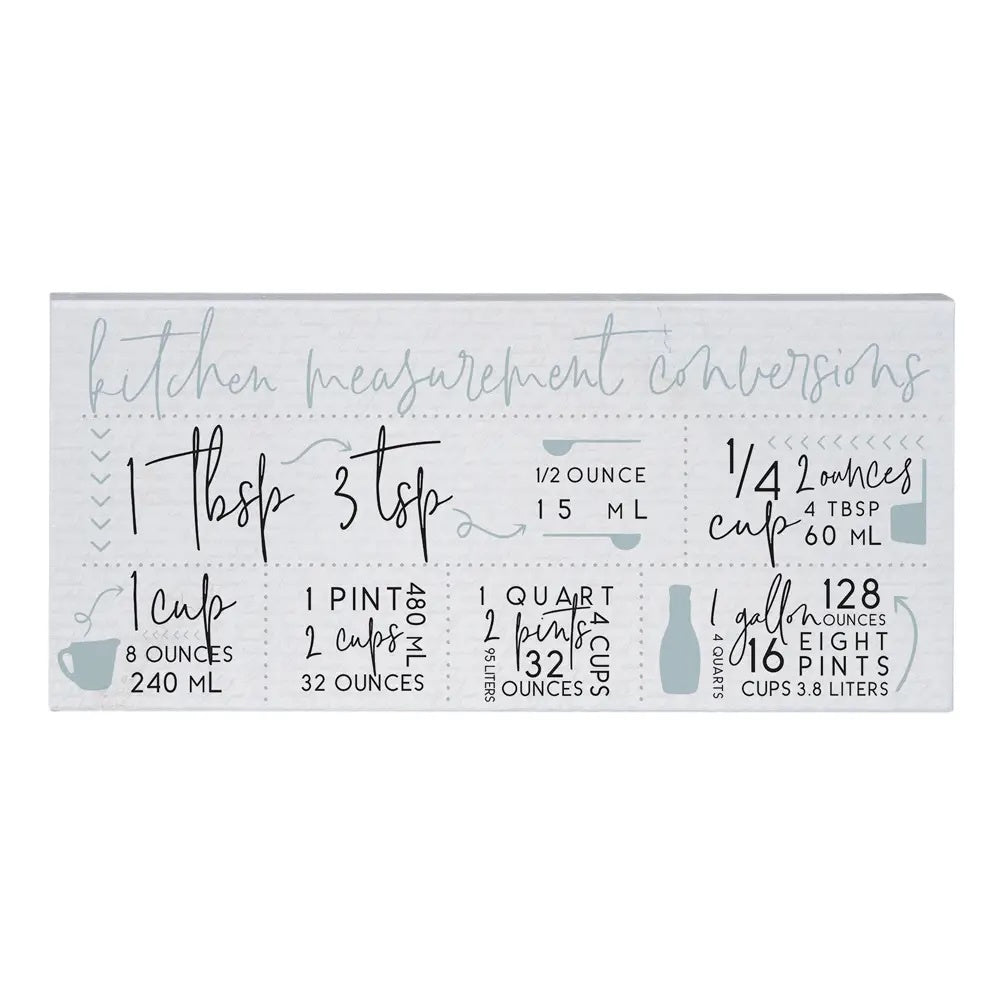 kitchen measurement conversions
1 tbsp
3 tsp
1/2 OUNCE
15 mL
1/4 cup
2 ounces
4 TBSP
60 mL
1 cup
8 OUNCES
240 ML
1 PINT
2 cups
32 OUNCES
480 ML
1 QUART
2 pints
32
OUNCES
4 CUPS
95 LITERS
1 gallon
4 QUARTS
128
OUNCES
16
CUPS
EIGHT
PINTS
3.8 LITERS